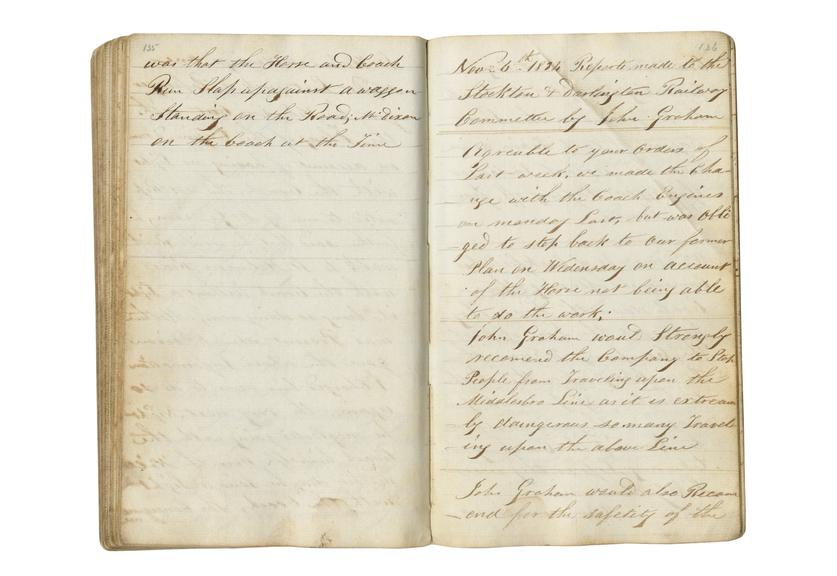 135
was that the Horse and Coach
Run Slap up against a waggon
Standing on the Road, Mr Dixon
on the Coach at the Time
136
Novr 6th 1834 Reports made to the
Stockton & Darlington Railway
Committee by John Graham
Agreuble to your Orders of
Last week, we made the Cha-
nge with the Coach Engines
on monday Last, but was Obli
-ged to step back to our former
Plan on Wedensday on account
of the Horse not being able
to do the work;
John Graham woud Strongly
recomend the Company to Stop
People from Traveling upon the
Middlesbro Line as it is extream
-ly daingerous so many Travel-
ing upon the above Line
John Graham would also Recom
-end for the safetity of the